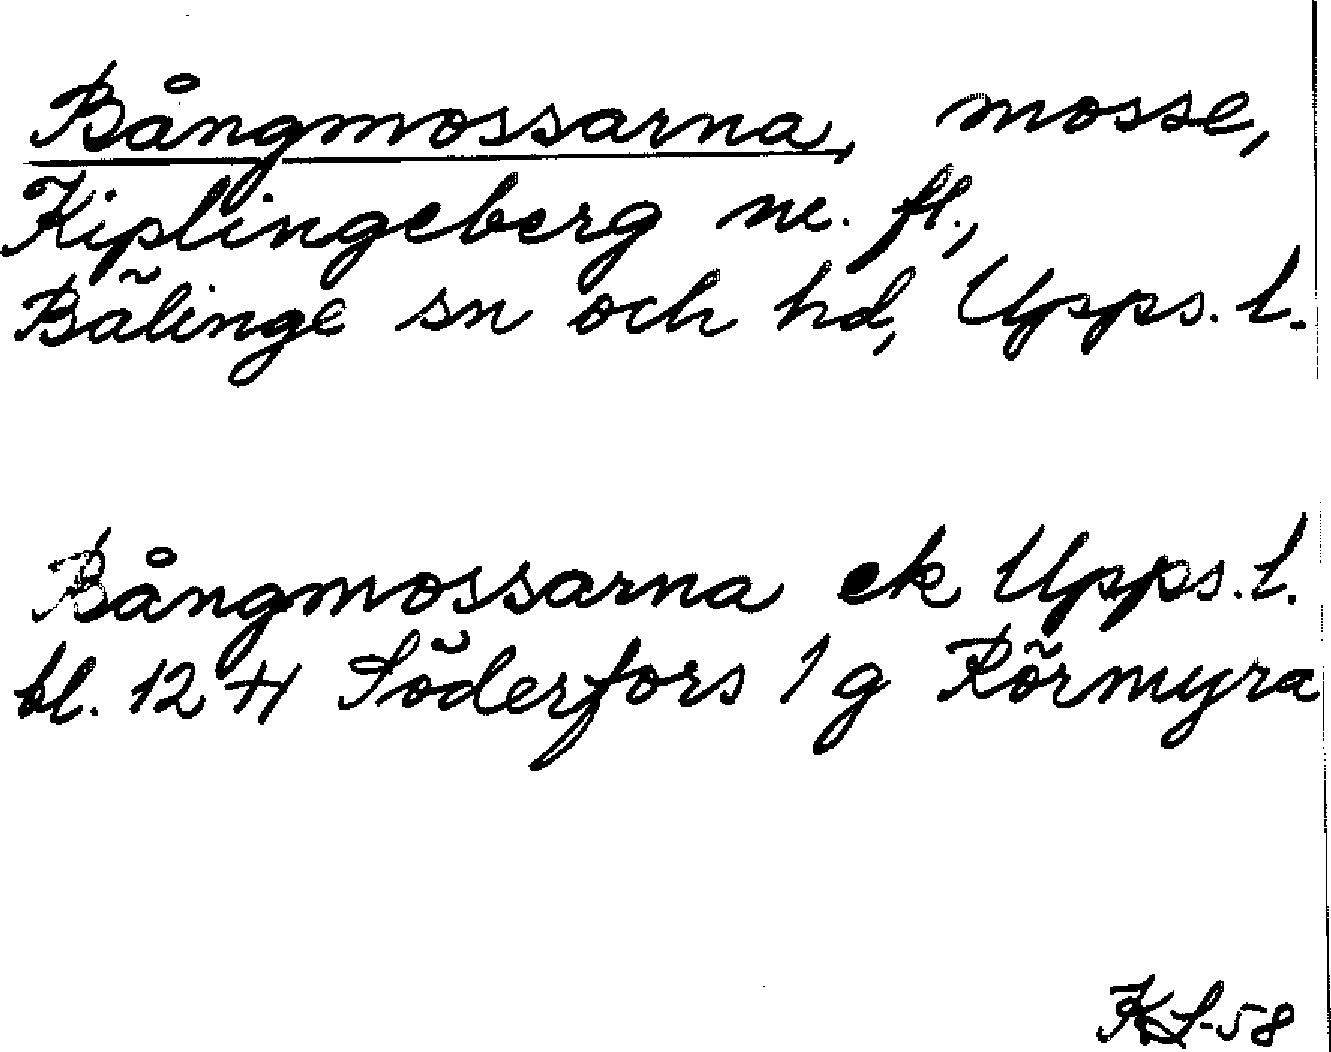 Bångmossarna, mosse,
Kiplingeberg ne. fl.,
Bälinge sn och hd, Upps. l.
Bångmossarna ek Upps. l.
bl. 12 H Söderfors 1 g Rörmyra
KS-58